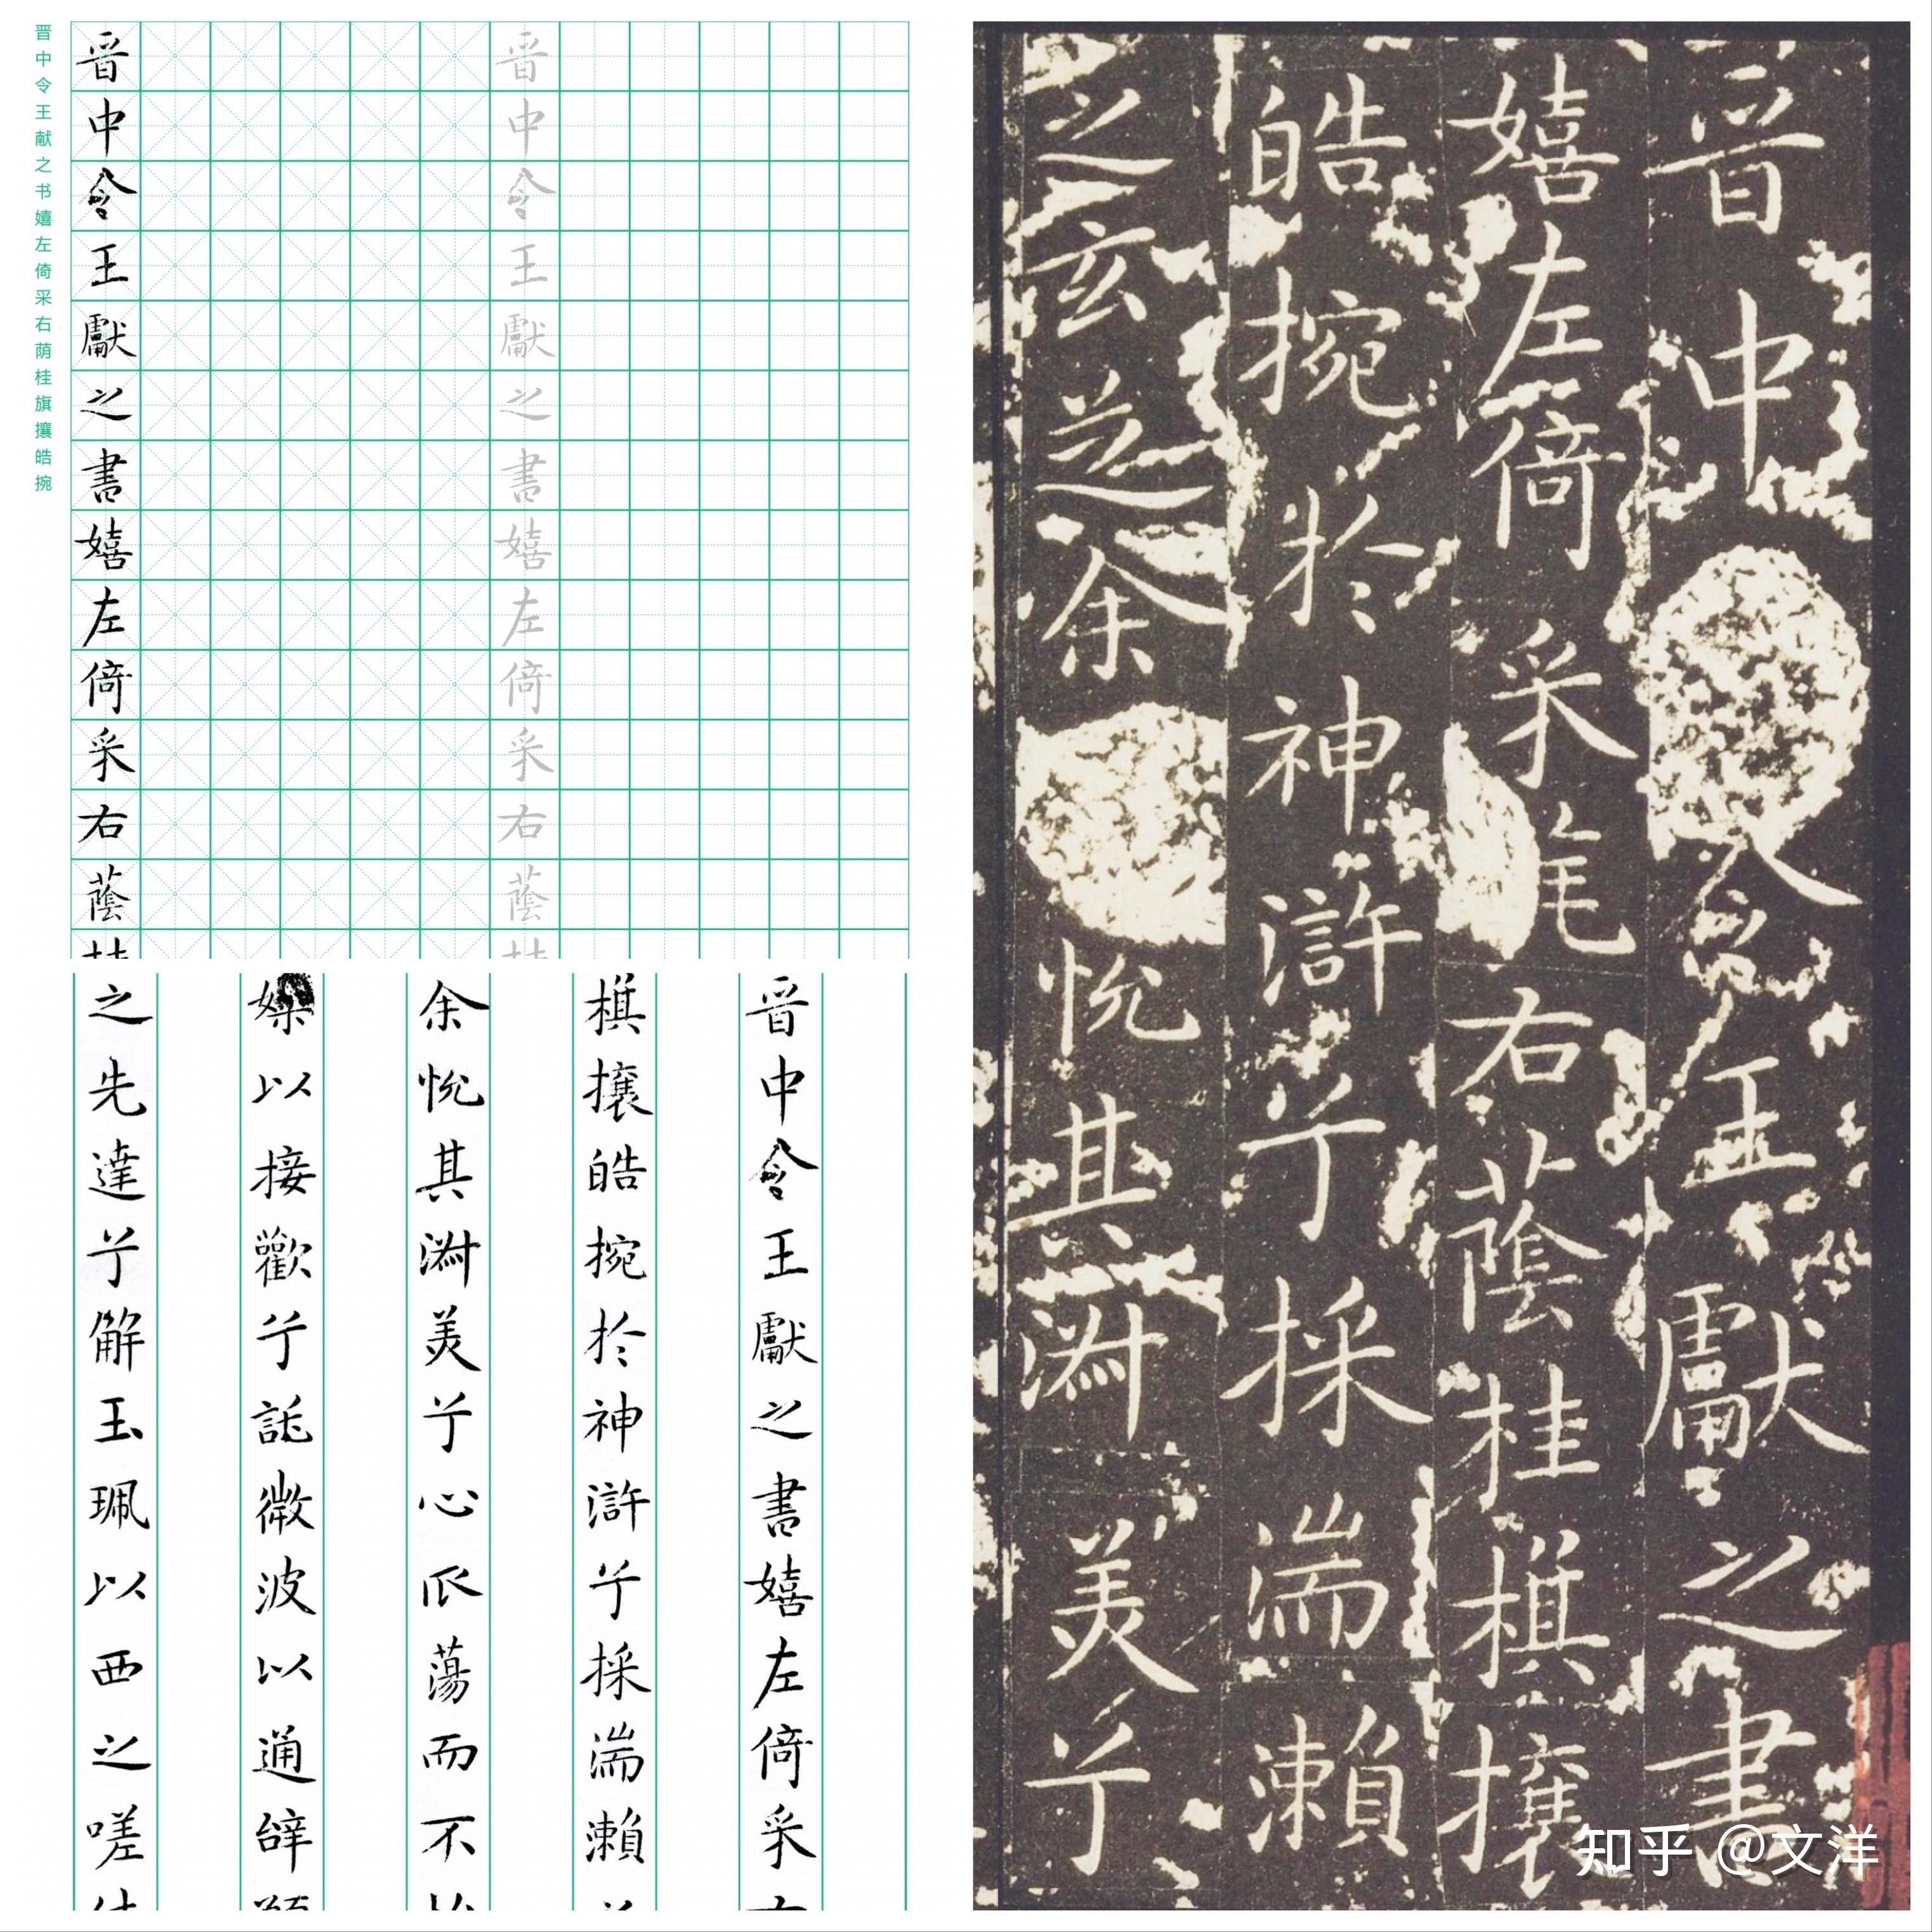 晋中令王献之书嬉左倚采右荫桂旗攘皓捥
晉中令王獻之書嬉左倚采右蔭
晉中令王獻之書嬉左倚采右蔭
晉中令王獻之書嬉左倚采
棋攘皓捥於神滸兮採湍瀨
余悅其淑美兮心蕩而不
媒以接歡兮託微波以通辭
之先達兮解玉珮以西之嗟
晉中令王獻之書
嬉左倚采旄右蔭桂棋攘
皓捥於神滸兮採湍瀨
之玄芝余悅其淑美兮
知乎 @文洋